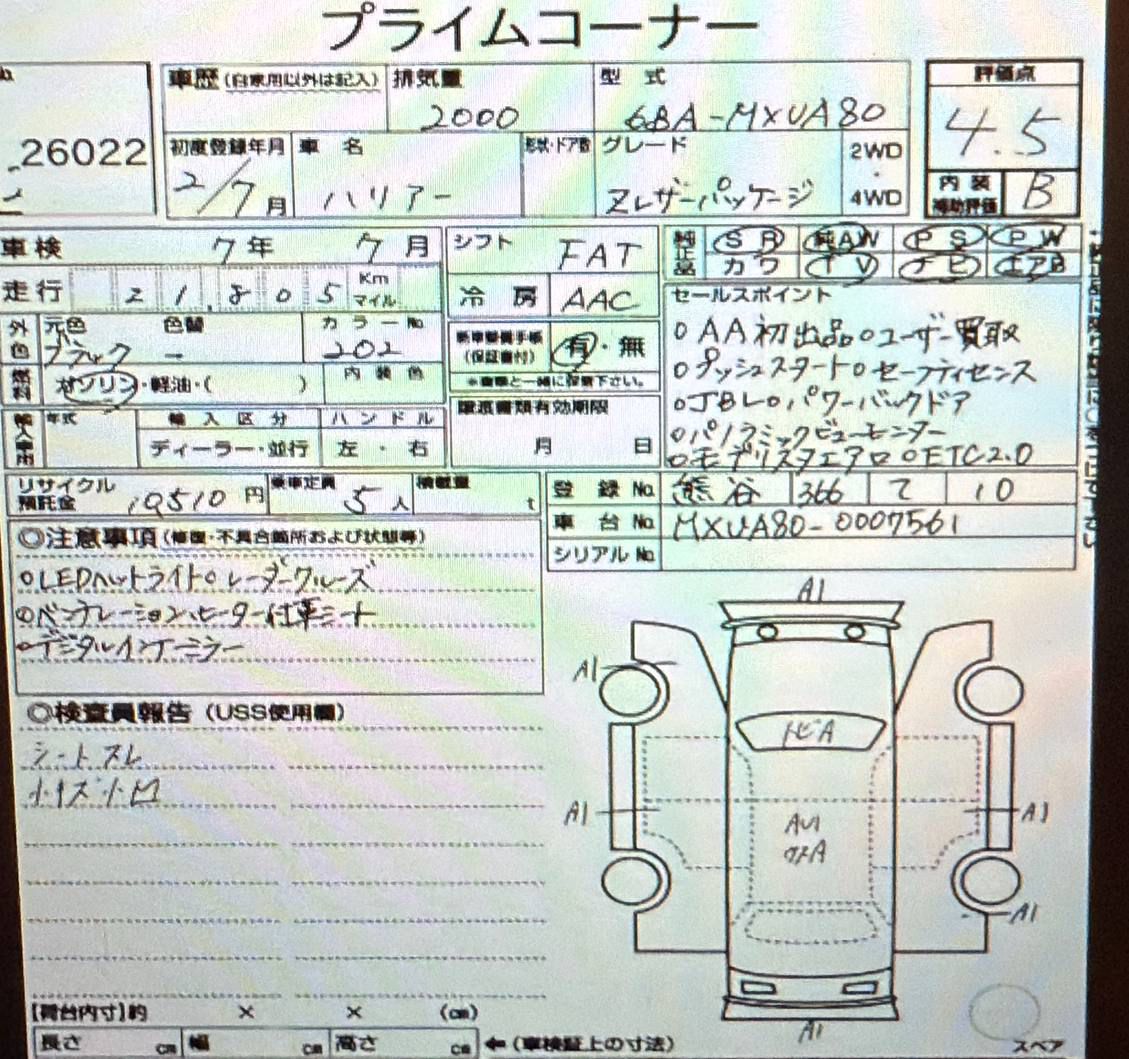 プライムコーナー
26022
車歴（自家用以外は記入） 排気量 2000 型式 6BA-MXUA80
評価点 4.5
初度登録年月 2/7月 車名 ハリアー 形状・ドア数 グレード Zレザーパッケージ 2WD・4WD
内装補助評価 B
車検 7年 7月 シフト FAT
純正品 SR 純AW PS PW
カワ TV ナビ エアB
走行 21,805 Km マイル 冷房 AAC
セールスポイント
外色 元色 ブラック 色替 ー カラーNo. 202
（保証書付） 有・無
○AA初出品○ユーザー買取
○プッシュスタート○セーフティセンス
燃料 ガソリン・軽油・（ ） 内装色
○JBL○パワーバックドア
年式 輸入区分 ハンドル
ディーラー・並行 左・右
譲渡書類有効期限 月 日
○パノラミックビューモニター
○モデリスタエアロ○ETC2.0
リサイクル預託金 10510円 乗車定員 5人 積載量 t
登録No. 熊谷 366 て 10
車台No. MXUA80-0007561
シリアルNo.
◎注意事項（修復・不具合箇所および状態等）
○LEDヘッドライト○レーダークルーズ
○ベンチレーション、ヒーター付革シート
○デジタルインナーミラー
◎検査員報告（USS使用欄）
シートスレ
小キズ小凹
A1
A1
トビA
A1
A1
AU1
A1
A1
【荷台内寸】約 × × （cm）
長さ cm 幅 cm 高さ cm ←（車検証上の寸法）
スペア